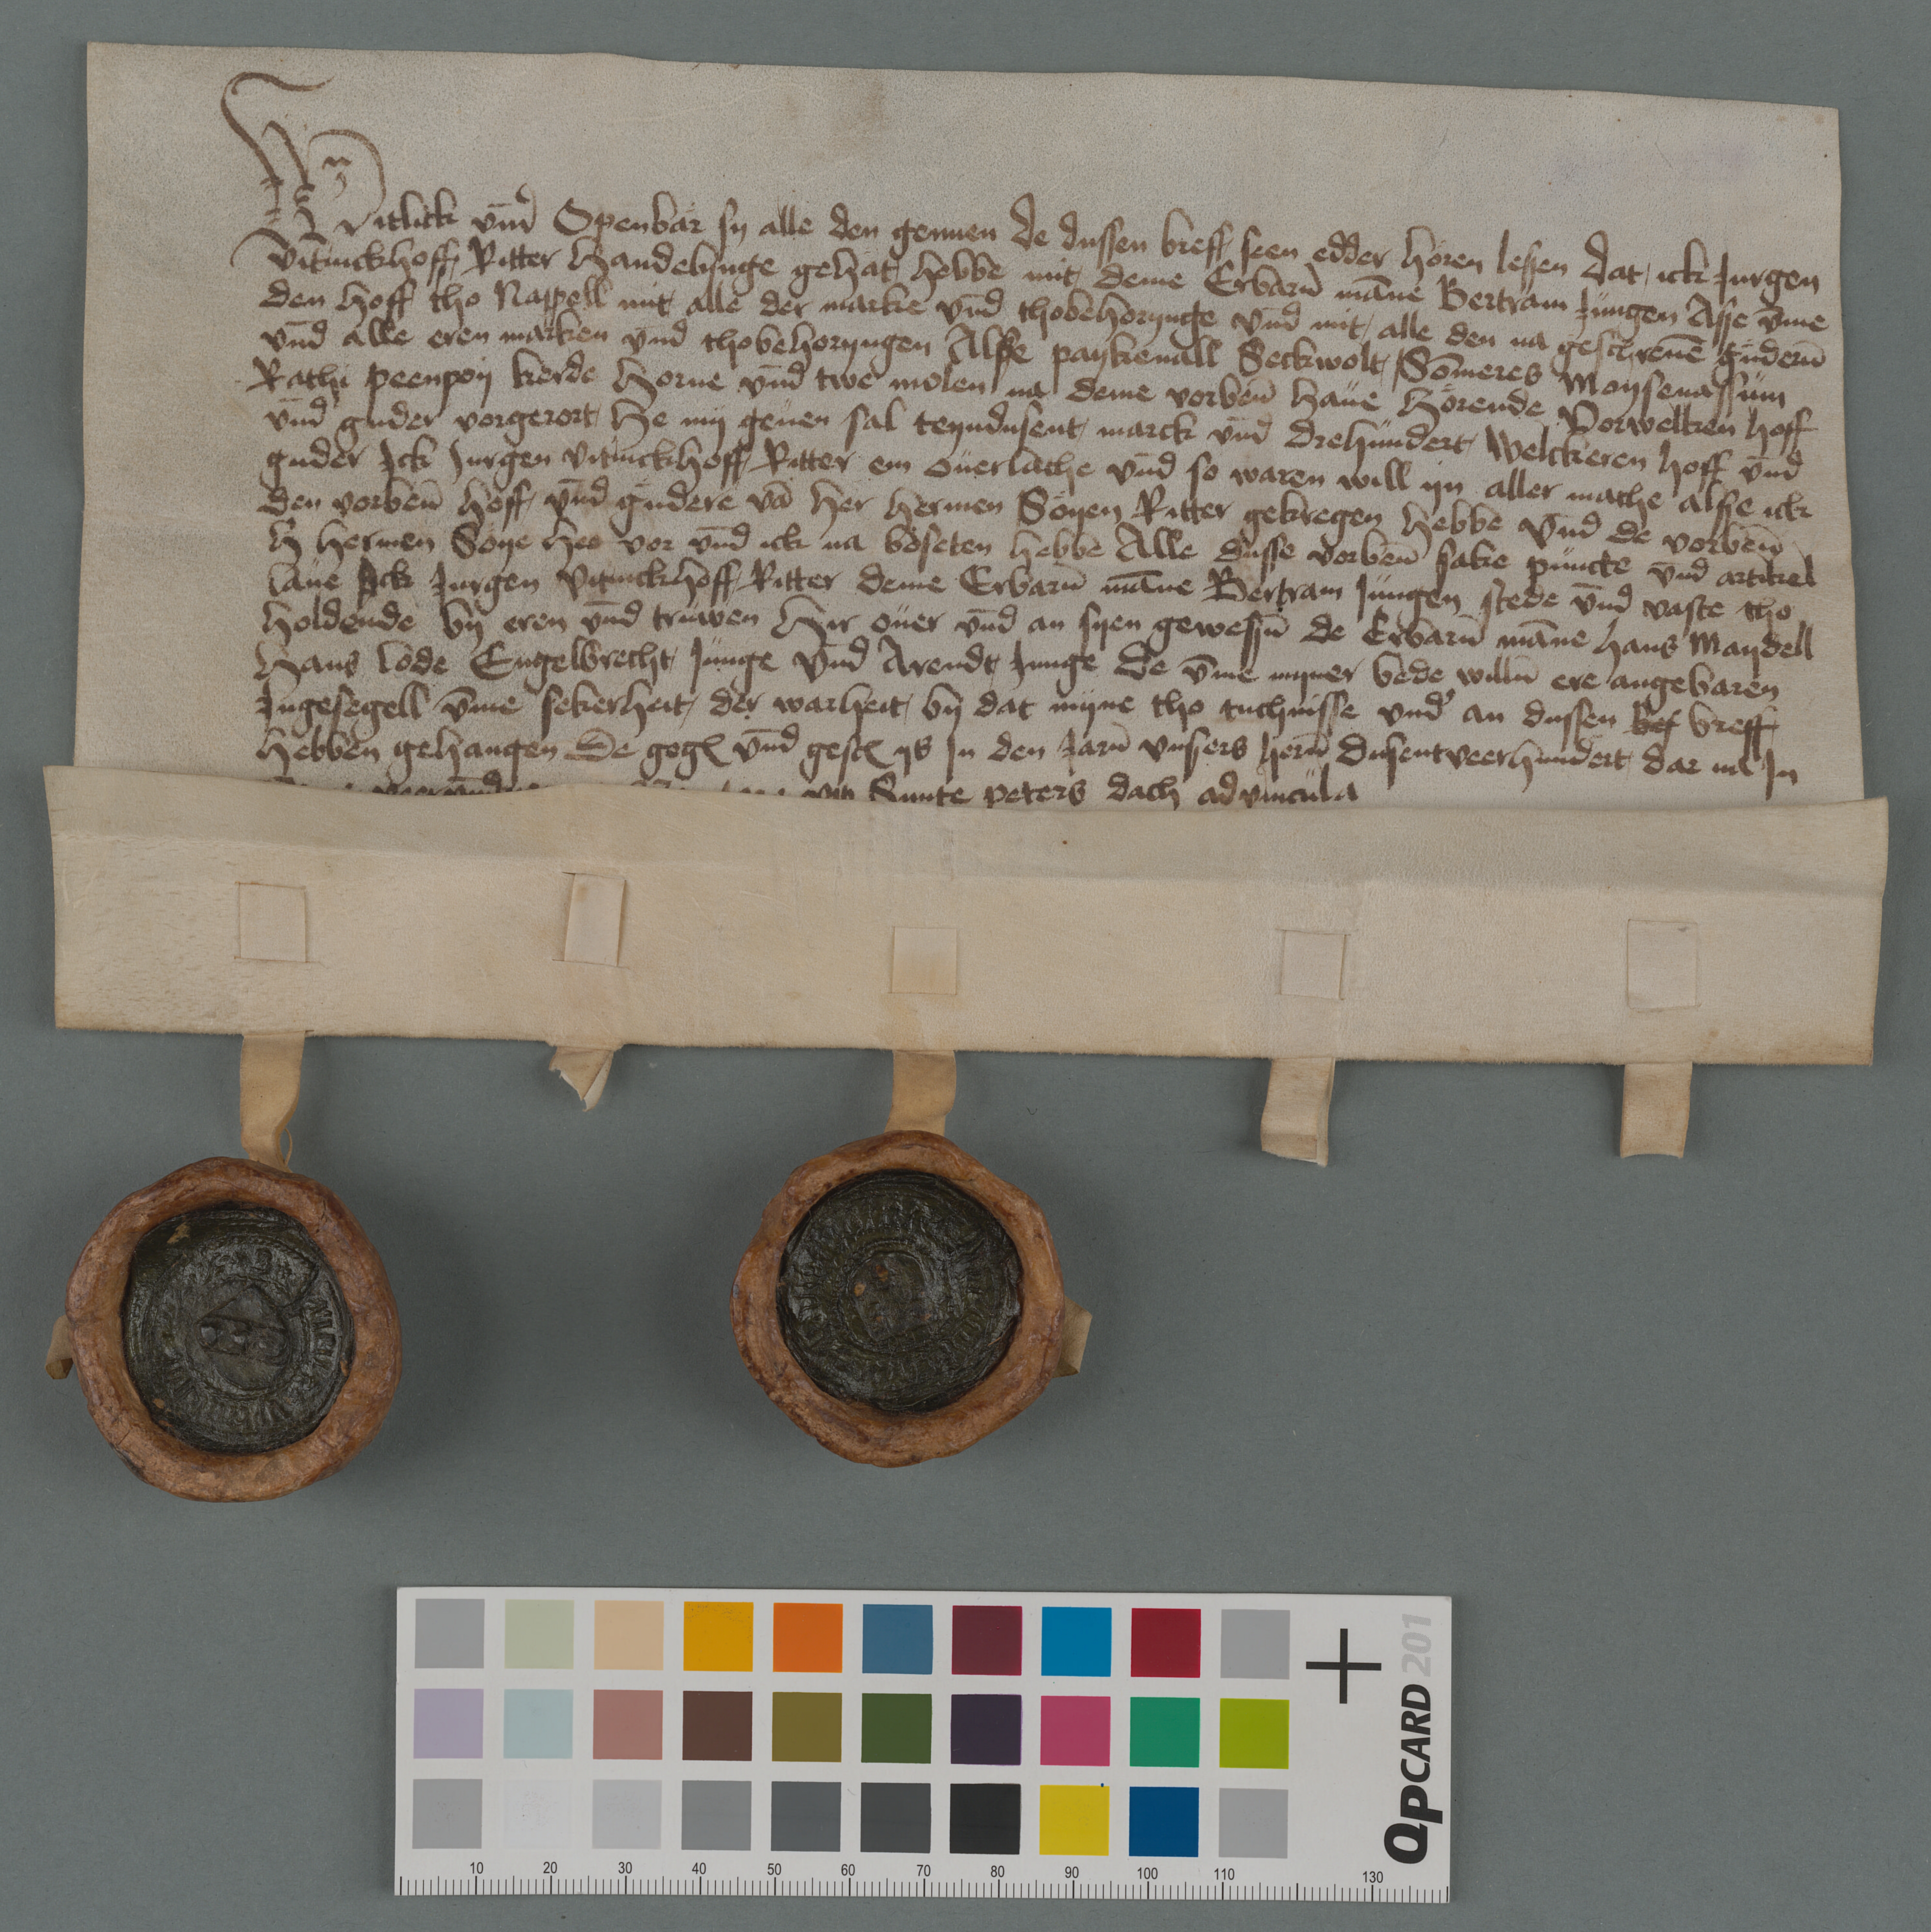 Witlick vnd Openbar sy alle den gennen de dussen breff seen edder horen lesen dat ick Jurgen
vitinckhoff Ritter Handelynge gehat hebbe mit deme Erbarn manne Bertram Jungen Asse vmme
den hoff tho Nappell mit alle der marke vnd thobehorynge vnd mit alle den na geschreuen gudern
vnd alle eren marken vnd thobehoryngen Alse paykenall Seckwolt Someres Moysenassum
Rathi peenpoy kerde Horne vnd twe molen na deme vorben haue Horende Vorwelken hoff
vnd guder vorgerort He my geuen sal teyndusent marck vnd drehundert Welckeren hoff vnd
guder Jck Jurgen vitinckhoff Ritter em ouerlathe vnd so waren will yn aller mathe alse ick
den vorben hoff vnd gudere va her Hermen Soyen Ritter gekregen hebbe Vnd de vorben
h Hermen Soye hee vor vnd ick na beseten hebbe Alle dusse vorben sake puncte vnd artikel
laue Jck Jurgen vitinckhoff Ritter deme Erbarn manne Bertram Jungen stede vnd vaste tho
holdende by eren vnd truwen Hir ouer vnd an syen gewesen de Erbarn manne hans Maydell
Hans lode Engelbrecht Junge Vnd Arendt Junge De vmme myner bede willn ere angebaren
Ingesegell vmme sekerheit der warheit by dat myne tho tuchnisse vnd an dussen bef breff
hebben gehangen De geg vnd gesc ys In den Jarn vnsers hern dusentveerhundert dar na In
Sunte peters dach advincula
10 20 30 40 50 60 70 80 90 100 110 130
QPCARD 201